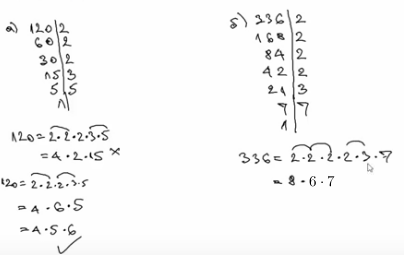 a) 120 | 2
60 | 2
30 | 2
15 | 3
5 | 5
1 |
120 = 2·2·2·3·5
= 4·2·15 ×
120 = 2·2·2·3·5
= 4·6·5
= 4·5·6
✓
б) 336 | 2
168 | 2
84 | 2
42 | 2
21 | 3
7 | 7
1 |
336 = 2·2·2·2·3·7
= 8·6·7